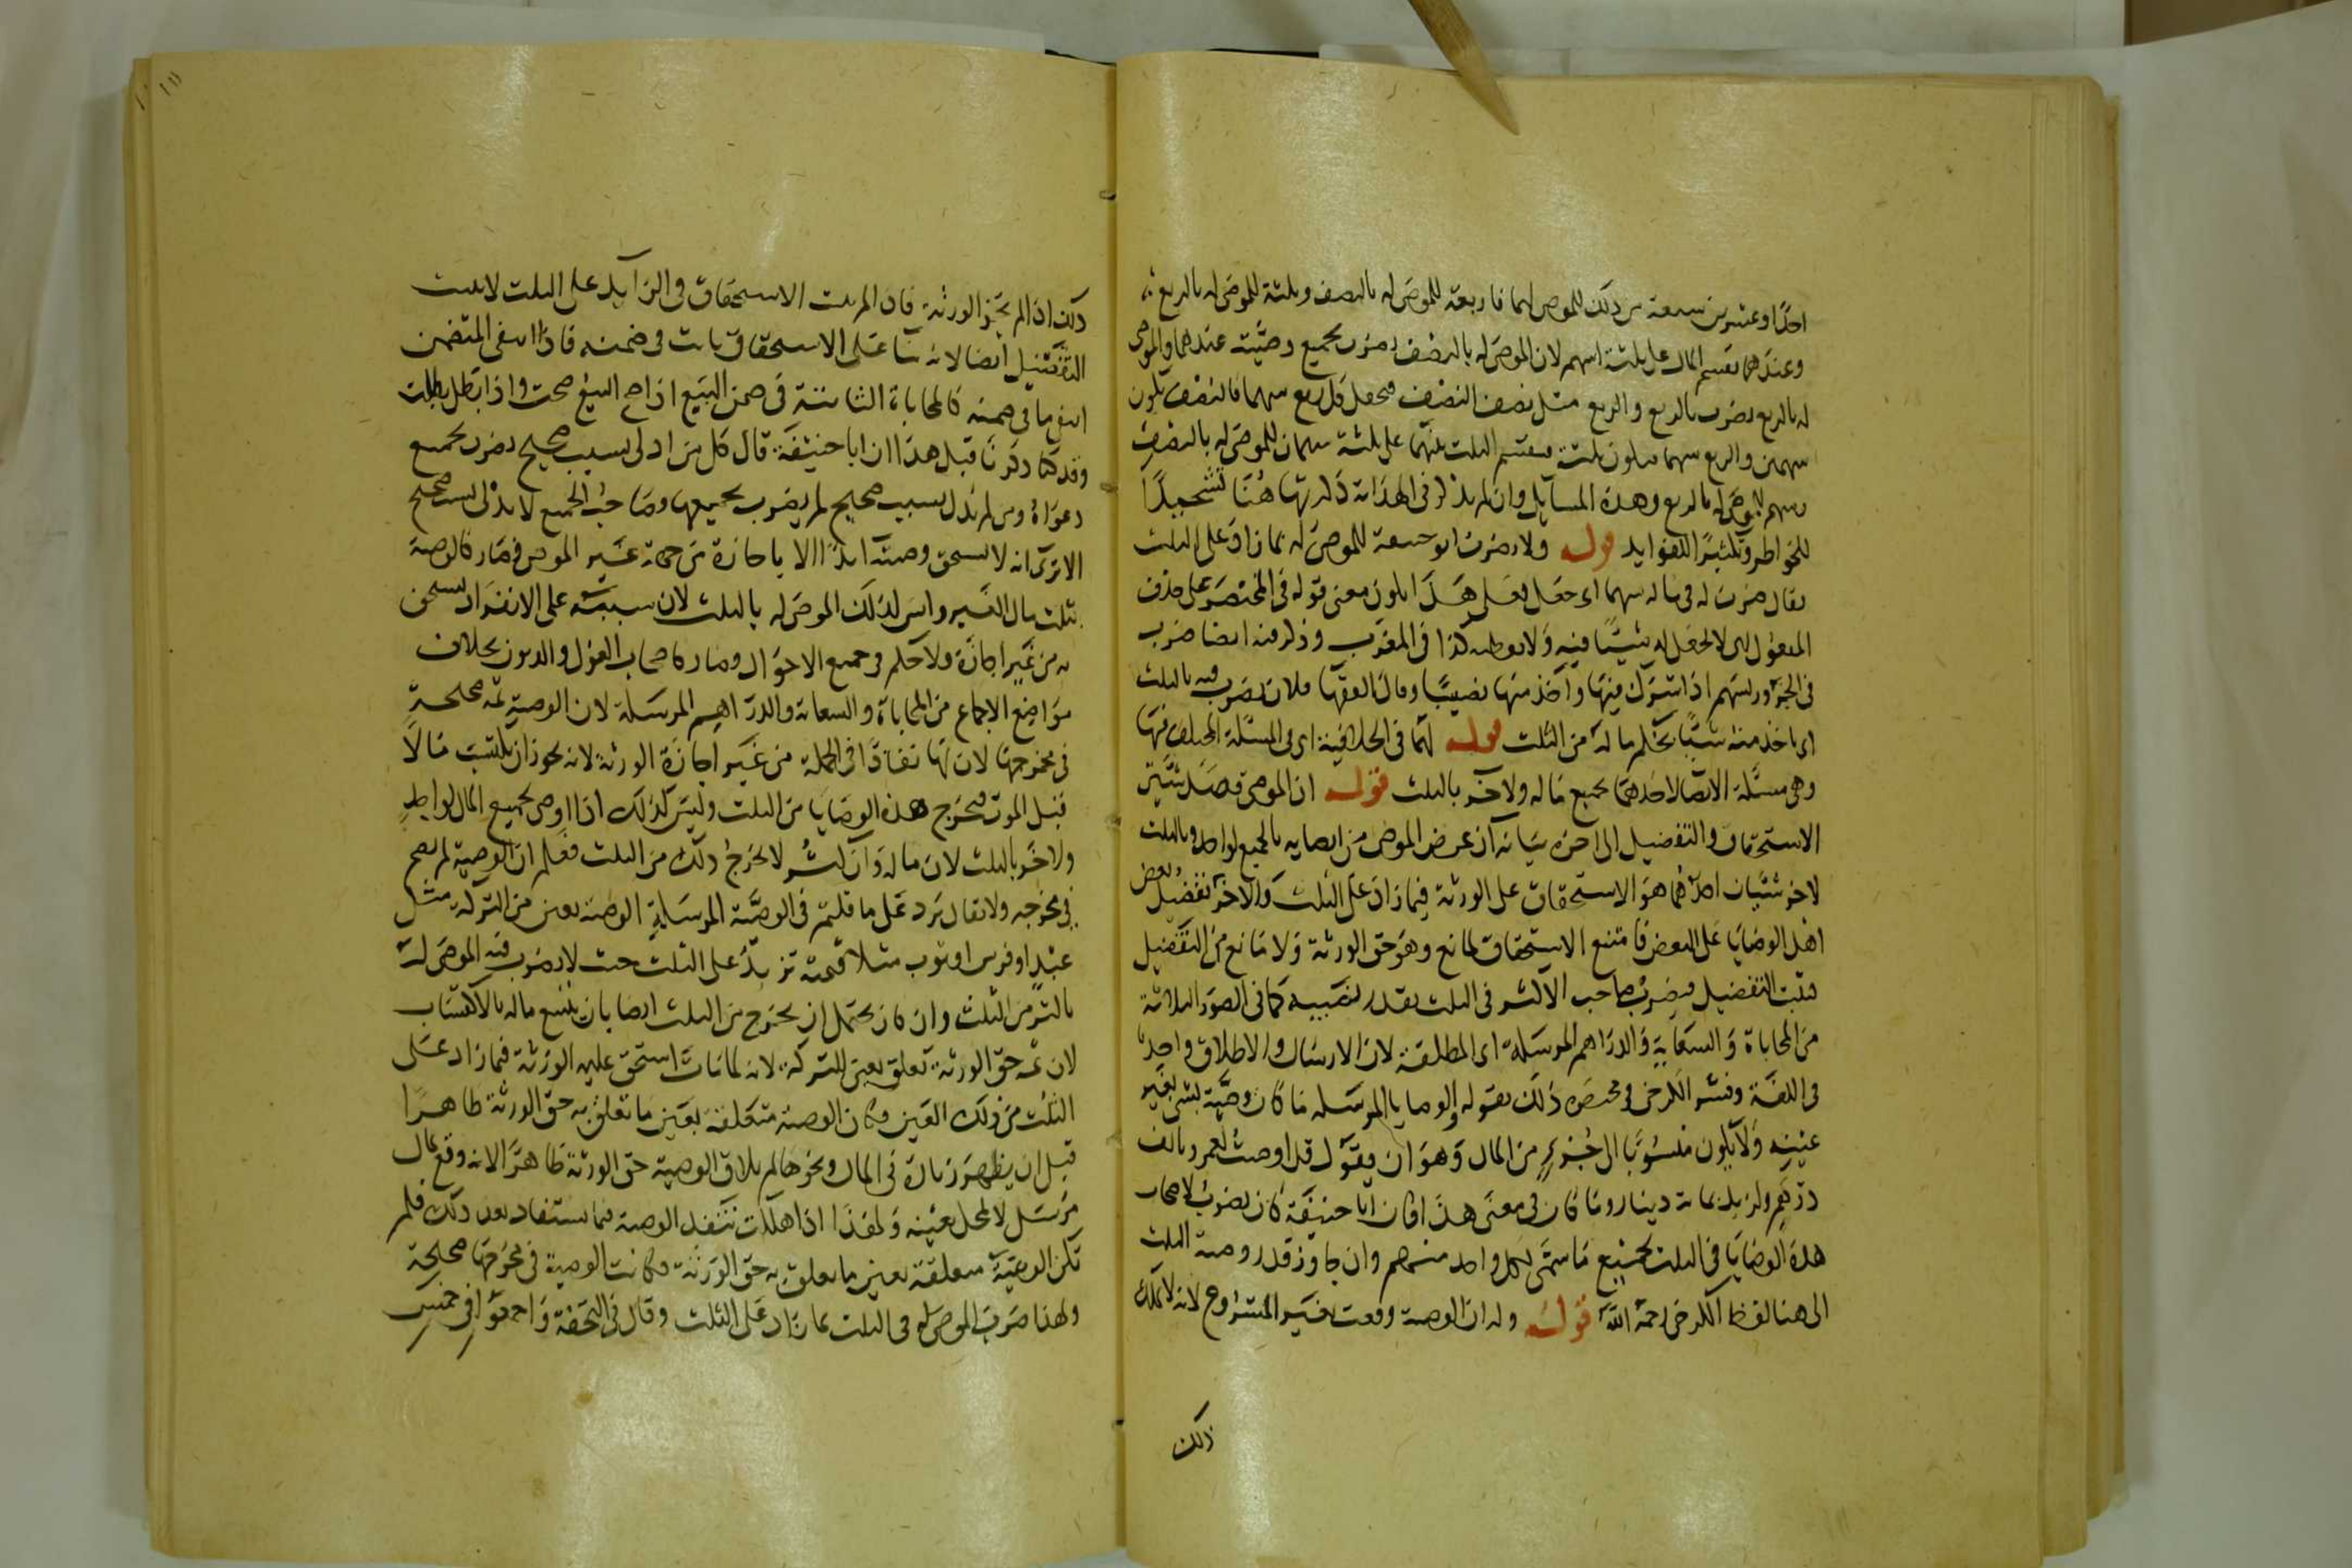 احدًا وعشرين سبعة من ذلك للموصى لهما فاربعة للموصى له بالنصف وثلثة للموصى له بالربع
وعندهما يقسم المال على ثلثة اسهم لان الموصى له بالنصف يضرب بجميع وصيته عندهما والموصى
له بالربع يضرب بالربع والربع مثل نصف النصف فجعل كل ربع سهما فالنصف يكون
سهمين والربع سهما فيكون ثلثة فيقسم الثلث بينهما على ثلثة سهمان للموصى له بالنصف
وسهم للموصى له بالربع وهذه المسائل وان لم يذكر في الهداية ذكرتها هنا تشحيذًا
للخواطر وتكثيرًا للفوايد قوله ولا يضرب ابو حنيفة للموصى له بما زاد على الثلث
يقال ضرب له في ماله سهما اى جعل فعلى هذا يكون معنى قوله في المختصر على حذف
المفعول اى لا يجعل له شيئًا فيه ولا يعطيه كذا في المغرب وذكر فيه ايضا ضرب
في الجزور بسهم اذا اشترك فيها واخذ منها نصيبًا وقال الفقها فلان يضرب فيه بالثلث
اى ياخذ منه شيئًا بحكم ماله من الثلث قوله لهما في الخلافية اى في المسئلة المختلف فيها
وهي مسئلة الايصا لاحدهما بجميع ماله ولاخر بالثلث قوله ان الموصى قصد شيئين
الاستحقاق والتفضيل الى اخره بيانه ان غرض الموصى من ايصايه بالجميع لواحد وبالثلث
لاخر شيئان احدهما هو الاستحقاق على الورثة فيما زاد على الثلث والاخر تفضيل بعض
اهل الوصايا على البعض فامتنع الاستحقاق لمانع وهو حق الورثة ولا مانع من التفضيل
فثبت التفضيل فيضرب صاحب الاكثر في الثلث بقدر نصيبه كما في الصور الثلاثة
من المحاباة والسعاية والدراهم المرسلة اى المطلقة لان الارسال والاطلاق واحد
في اللغة وفسر الكرخى في مختصره ذلك بقوله والوصايا المرسلة ما كان وصية بشى بغير
عينه ولا يكون منسوبًا الى جزء من المال وهو ان يقول قد اوصيت لعمرو بالف
درهم ولزيد بماية دينار وما كان في معنى هذا فان ابا حنيفة كان يضرب لاصحاب
هذه الوصايا في الثلث بجميع ما سمى لكل واحد منهم وان جاوز قدر وصية الثلث
الى هنا لفظ الكرخى رحمه الله قوله وله ان الوصية وقعت بغير المشروع لانه لا يملك
ذلك
ذلك اذا لم يجز الورثة فان لم يثبت الاستحقاق في الزايد على الثلث لا يثبت
التفضيل ايضا لانه بنا على الاستحقاق ثابت في ضمنه فاذا انتفى المتضمن
انتفى ما في ضمنه كالمحاباة الثابتة في ضمن البيع اذا صح البيع صحت واذا بطل بطلت
وقد كنا ذكرنا قبل هذا ان ابا حنيفة قال كل من ادلى بسبب صحيح يضرب بجميع
دعواه ومن لم يدل بسبب صحيح لم يضرب بجميعها وصاحب الجميع لا يدلى بسبب صحيح
الا ترى انه لا يستحق وصيته ابدًا الا باجازة من جهة غير الموصى فصار كالوصية
بثلث مال الغير وليس كذلك الموصى له بالثلث لان سببه على الانفراد يستحق
به من غير اجازة ولا حكم في جميع الاحوال وصار كاصحاب العول والديون بخلاف
مواضع الاجماع من المحاباة والسعاية والدراهم المرسلة لان الوصية ثمه صحيحة
في مخرجها لان لها نفاذًا في الجملة من غير اجازة الورثة لانه يجوز ان يكتسب مالًا
قبل الموت فيخرج هذه الوصايا من الثلث وليس كذلك اذا اوصى بجميع المال لواحد
ولاخر بالثلث لان ماله وان كثر لا يخرج ذلك من الثلث فعلم ان الوصية لم تصح
في مخرجه ولا يقال يرد على ما قلتم في الوصية المرسلة الوصية بعين من التركة مثل
عبد او فرس او ثوب مثلا قيمته تزيد على الثلث حيث لا يضرب فيه الموصى له
باكثر من الثلث وان كان يحتمل ان يخرج من الثلث ايضا بان يتسع ماله بالاكتساب
لان ثمه حق الورثة تعلق بعين التركة لانه لما مات استحق عليه الورثة فيما زاد على
الثلث من ذلك العين فكان الوصية متعلقة بعين ما تعلق به حق الورثة ظاهرًا
قبل ان يظهر زيادة في المال ونحوها لم يلاق الوصية حق الورثة ظاهرًا لانه وقع بمال
مرسل لا بمحل بعينه ولهذا اذا هلكت تنفذ الوصية فيما يستفاد بعد ذلك فلم
تكن الوصية متعلقة بعين ما تعلق به حق الورثة فكانت الوصية في مخرجها صحيحة
ولهذا ضرب الموصى له في الثلث بما زاد على الثلث وقال في التحفة واجمعوا في خمس